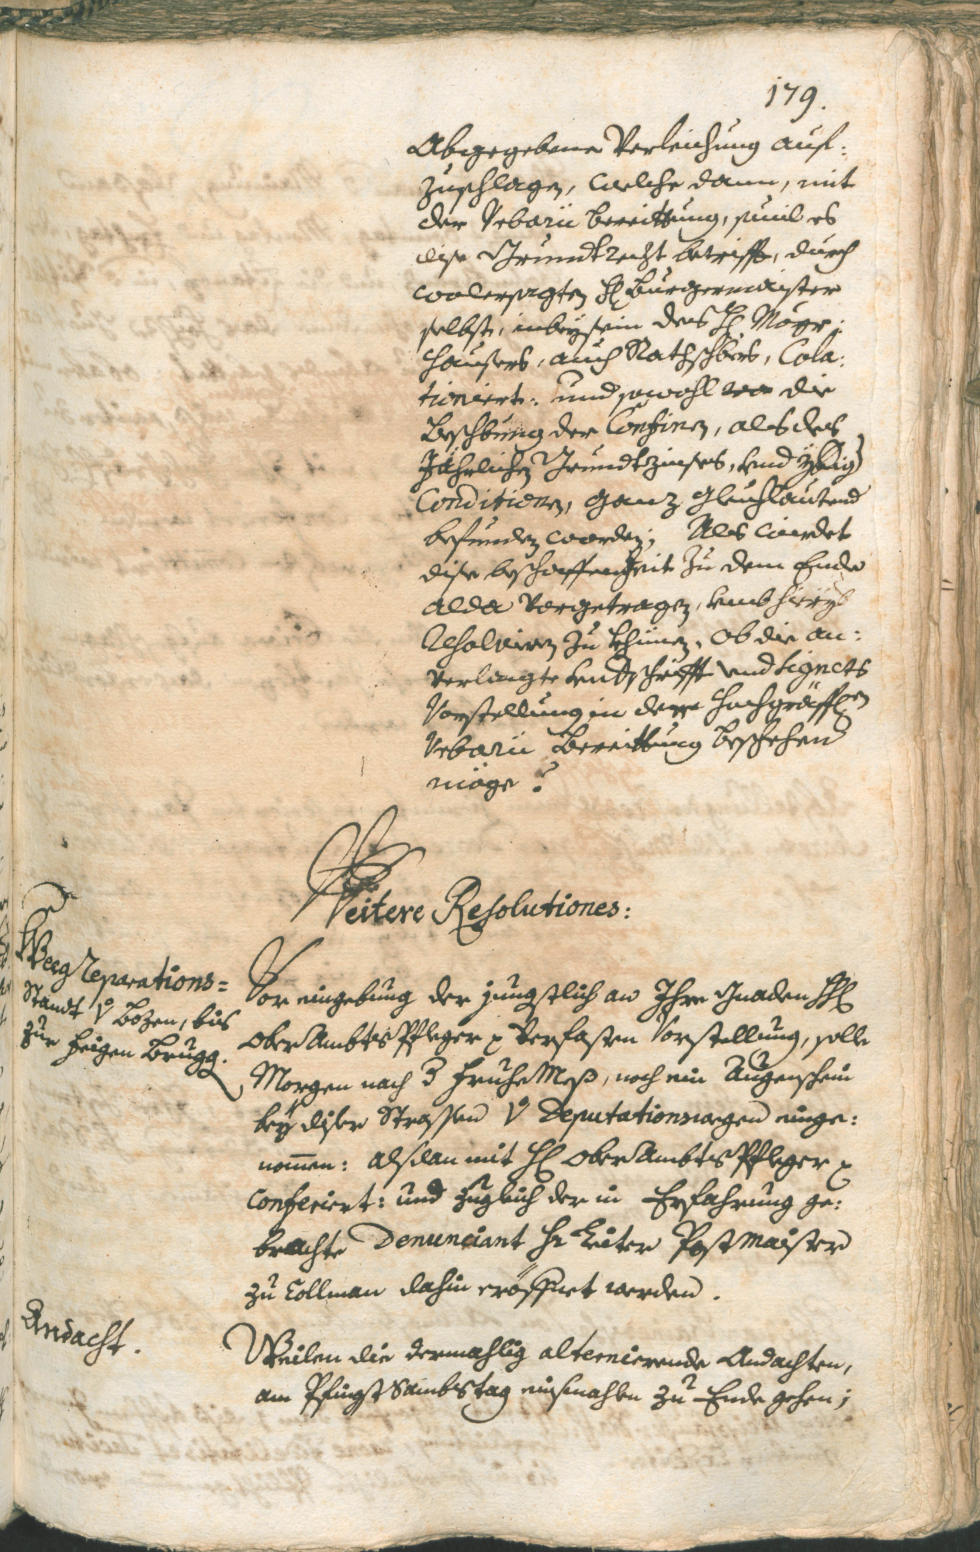 179.
Abgegebene Verleichung auf:
zuschlagen, welche dann, mit
der Urbarii bereittung, sovil es
dise Grundtrecht betrifft, durch
wolersagten H: Burgermaister
selbst, in beysein des H: Mayr:
hausers, auch Rathschbers, Cola:
tioniert: und sowohl die
Beschbung der Confinen, als des
Jährlichen Grundtzinses, und
Conditionen, ganz gleichlautend
befunden worden; Als wirdet
dise beschaffenheit zu dem Ende
alda vorgetragen, umb
Resolvieren zu khünen, ob die an:
verlangte undschrifft und Signets
Vorstellung in dere hochgräffl:en
Urbarii Bereittung beschehen
möge?
Weitere Resolutiones:
Weeg reparations=
Standt v: Bozen, bis
zur heigen Brugg.
Vor eingebung der jüngstlich an Ihro Gnaden HH:
Ober Ambts Pfleger verfasten Vorstellung, solle
Morgen nach 3 fruhe Meß, noch ein Augenschein
bey diser Strassen Deputationwegen einge:
nomen: alsdan mit H: Ober Ambts Pfleger
conferiert: und zugleich der in Erfahrung ge:
brachte Denunciant Hr: Postmaister
zu Collman dahin eröffnet werden.
Andacht.
Weilen die dermahlig alternierende Andachten,
am Pfingst Sambstag einsmahlen zu Ende gehen;